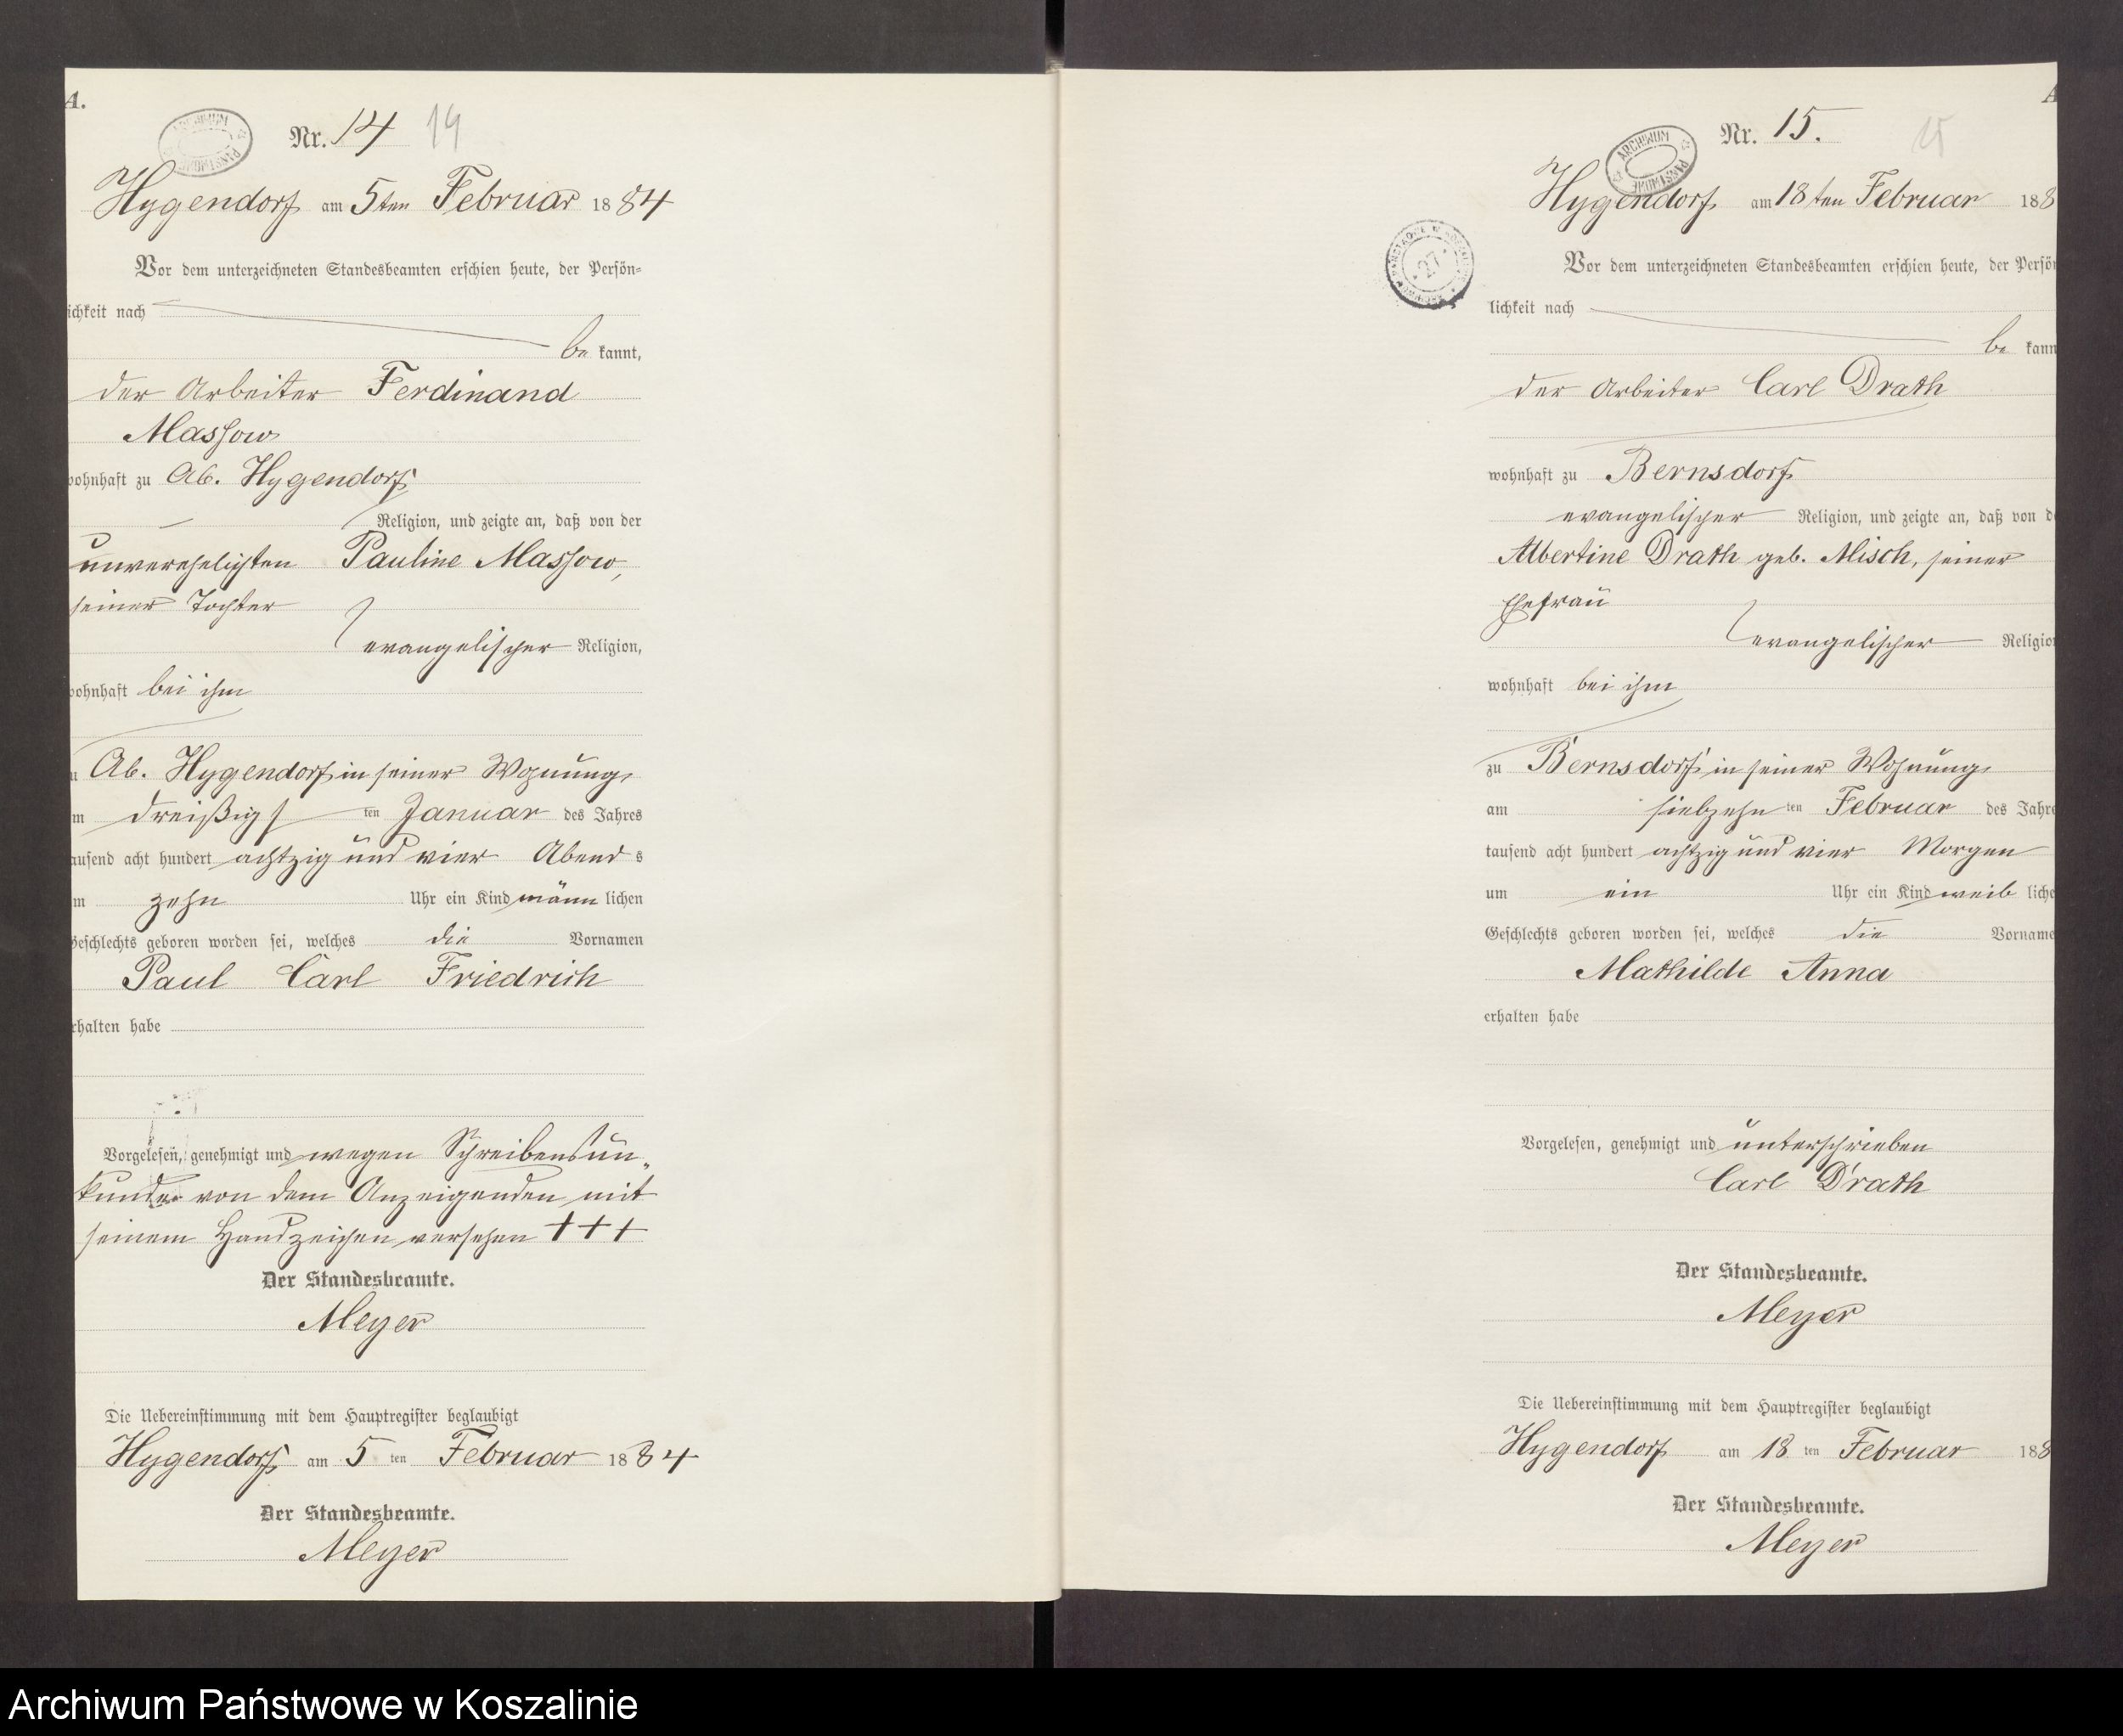 A.
ARCHIWUM PAŃSTWOWE
Nr. 14 14
Hygendorf am 5ten Februar 1884
Vor dem unterzeichneten Standesbeamten erschien heute, der Persön=
ichkeit nach
be kannt,
der Arbeiter Ferdinand
Massow
wohnhaft zu Ab. Hygendorf
Religion, und zeigte an, daß von der
unverehelichten Pauline Massow,
seiner Tochter
evangelischer Religion,
wohnhaft bei ihm
u Ab. Hygendorf in seiner Wohnung
m dreißigs ten Januar des Jahres
ausend acht hundert achtzig und vier Abend s
m zehn Uhr ein Kind männ lichen
Geschlechts geboren worden sei, welches die Vornamen
Paul Carl Friedrich
rhalten habe
Vorgelesen, genehmigt und wegen Schreibensun„
kunde von dem Anzeigenden mit
seinem Handzeichen versehen +++
Der Standesbeamte.
Meyer
Die Uebereinstimmung mit dem Hauptregister beglaubigt
Hygendorf am 5 ten Februar 1884
Der Standesbeamte.
Meyer
A
ARCHIWUM PAŃSTWOWE
Nr. 15. 15
Hygendorf am 18ten Februar 188
27
Vor dem unterzeichneten Standesbeamten erschien heute, der Persön
lichkeit nach
be kann
der Arbeiter Carl Drath
wohnhaft zu Bernsdorf
evangelischer Religion, und zeigte an, daß von d
Albertine Drath geb. Misch, seiner
Ehefrau
evangelischer Religion
wohnhaft bei ihm
zu Bernsdorf in seiner Wohnung
am siebzehn ten Februar des Jahre
tausend acht hundert achtzig und vier Morgen
um ein Uhr ein Kind weib liche
Geschlechts geboren worden sei, welches die Vorname
Mathilde Anna
erhalten habe
Vorgelesen, genehmigt und unterschrieben
Carl Drath
Der Standesbeamte.
Meyer
Die Uebereinstimmung mit dem Hauptregister beglaubigt
Hygendorf am 18 ten Februar 188
Der Standesbeamte.
Meyer
Archiwum Państwowe w Koszalinie